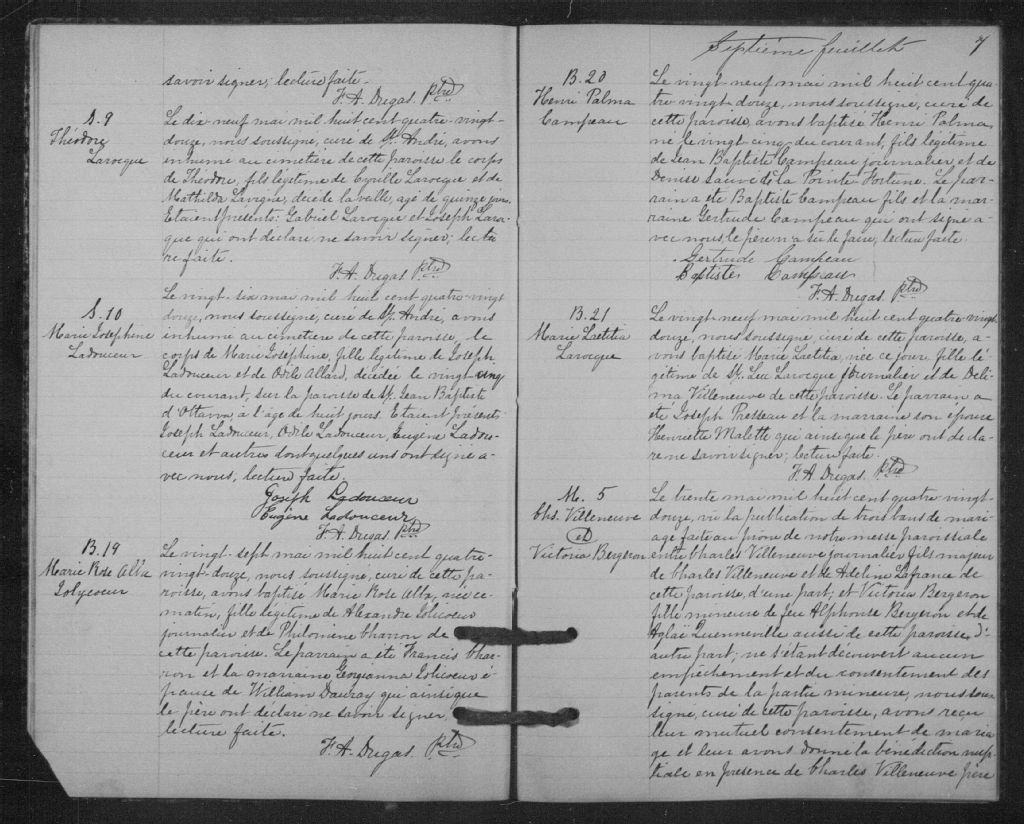 savoir signer, lecture faite.
F. A. Dugas Ptre
S. 9
Théodore
Larocque
Le dix neuf mai mil huit cent quatre-vingt-
douze, nous soussigné, curé de St. André, avons
inhumé au cimetière de cette paroisse le corps
de Théodore, fils légitime de Cyrille Larocque et de
Mathilda Lavigne, décédé la veille, agé de quinze jours.
Etaient présents: Gabriel Larocque et Joseph Laroc-
que qui ont déclaré ne savoir signer; lectu
re faite.
F. A. Dugas Ptre
S. 10
Marie Joséphine
Ladouceur
Le vingt-six mai mil huit cent quatre-vingt
douze, nous soussigné, curé de St. André, avons
inhumé au cimetière de cette paroisse, le
corps de Marie Joséphine, fille légitime de Joseph
Ladouceur et de Odile Allard, décédée le vingt-cinq
du courant, sur la paroisse de St. Jean Baptiste
d'Ottawa à l'âge de huit jours. Etaient présents
Joseph Ladouceur, Odile Ladouceur, Eugène Ladou-
ceur et autres dont quelques uns ont signé a-
vec nous, lecture faite.
Joseph Ladouceur
Eugène Ladouceur
F. A. Dugas Ptre
B. 19
Marie Rose Alba
Jolycoeur
Le vingt-sept mai mil huit cent quatre-
vingt-douze, nous soussigné, curé de cette pa-
roisse, avons baptisé Marie Rose Alba, née ce
matin, fille légitime de Alexandre Jolicoeur
journalier et de Philomène Charron de
cette paroisse. Le parrain a été Francis Char-
ron et la marraine Georgianna Jolicoeur é-
pouse de William Dauray qui ainsi que
le père ont déclaré ne savoir signer,
lecture faite.
F. A. Dugas Ptre
Septième feuillet 7
B. 20
Henri Palma
Campeau
Le vingt-neuf mai mil huit cent qua
tre vingt-douze, nous soussigné, curé de
cette paroisse, avons baptisé Henri Palma,
né le vingt-cinq du courant, fils légitime
de Jean Baptiste Campeau journalier et de
Denise Sauvé de la Pointe-Fortune. Le par-
rain a été Baptiste Campeau fils et la mar-
raine Gertrude Campeau qui ont signé a-
vec nous, le père n'a su le faire, lecture faite.
Gertrude Campeau
Baptiste Campeau
F. A. Dugas Ptre
B. 21
Marie Laetitia
Larocque
Le vingt-neuf mai mil huit cent quatre-vingt
douze, nous soussigné, curé de cette paroisse, a-
vons baptisé Marie Laetitia, née ce jour, fille lé-
gitime de St. Luc Larocque journalier et de Deli-
ma Villeneuve de cette paroisse. Le parrain a
été Joseph Presseau et la marraine son épouse
Henriette Malette qui ainsi que le père ont décla-
ré ne savoir signer; lecture faite.
F. A. Dugas Ptre
M. 5
Chs. Villeneuve
et
Victoria Bergeron
Le trente mai mil huit cent quatre vingt-
douze, vu la publication de trois bans de mari-
age faite au prône de notre messe paroissiale
entre Charles Villeneuve journalier fils majeur
de Charles Villeneuve et de Adeline Lafrance de
cette paroisse, d'une part; et Victoria Bergeron
fille mineure de feu Alphonse Bergeron et de
Aglaé Quenneville aussi de cette paroisse, d'
autre part; ne s'étant découvert aucun
empêchement et du consentement des
parents de la partie mineure, nous sous
signé, curé de cette paroisse, avons reçu
leur mutuel consentement de maria
ge et leur avons donné la bénédiction nup
tiale en présence de Charles Villeneuve père